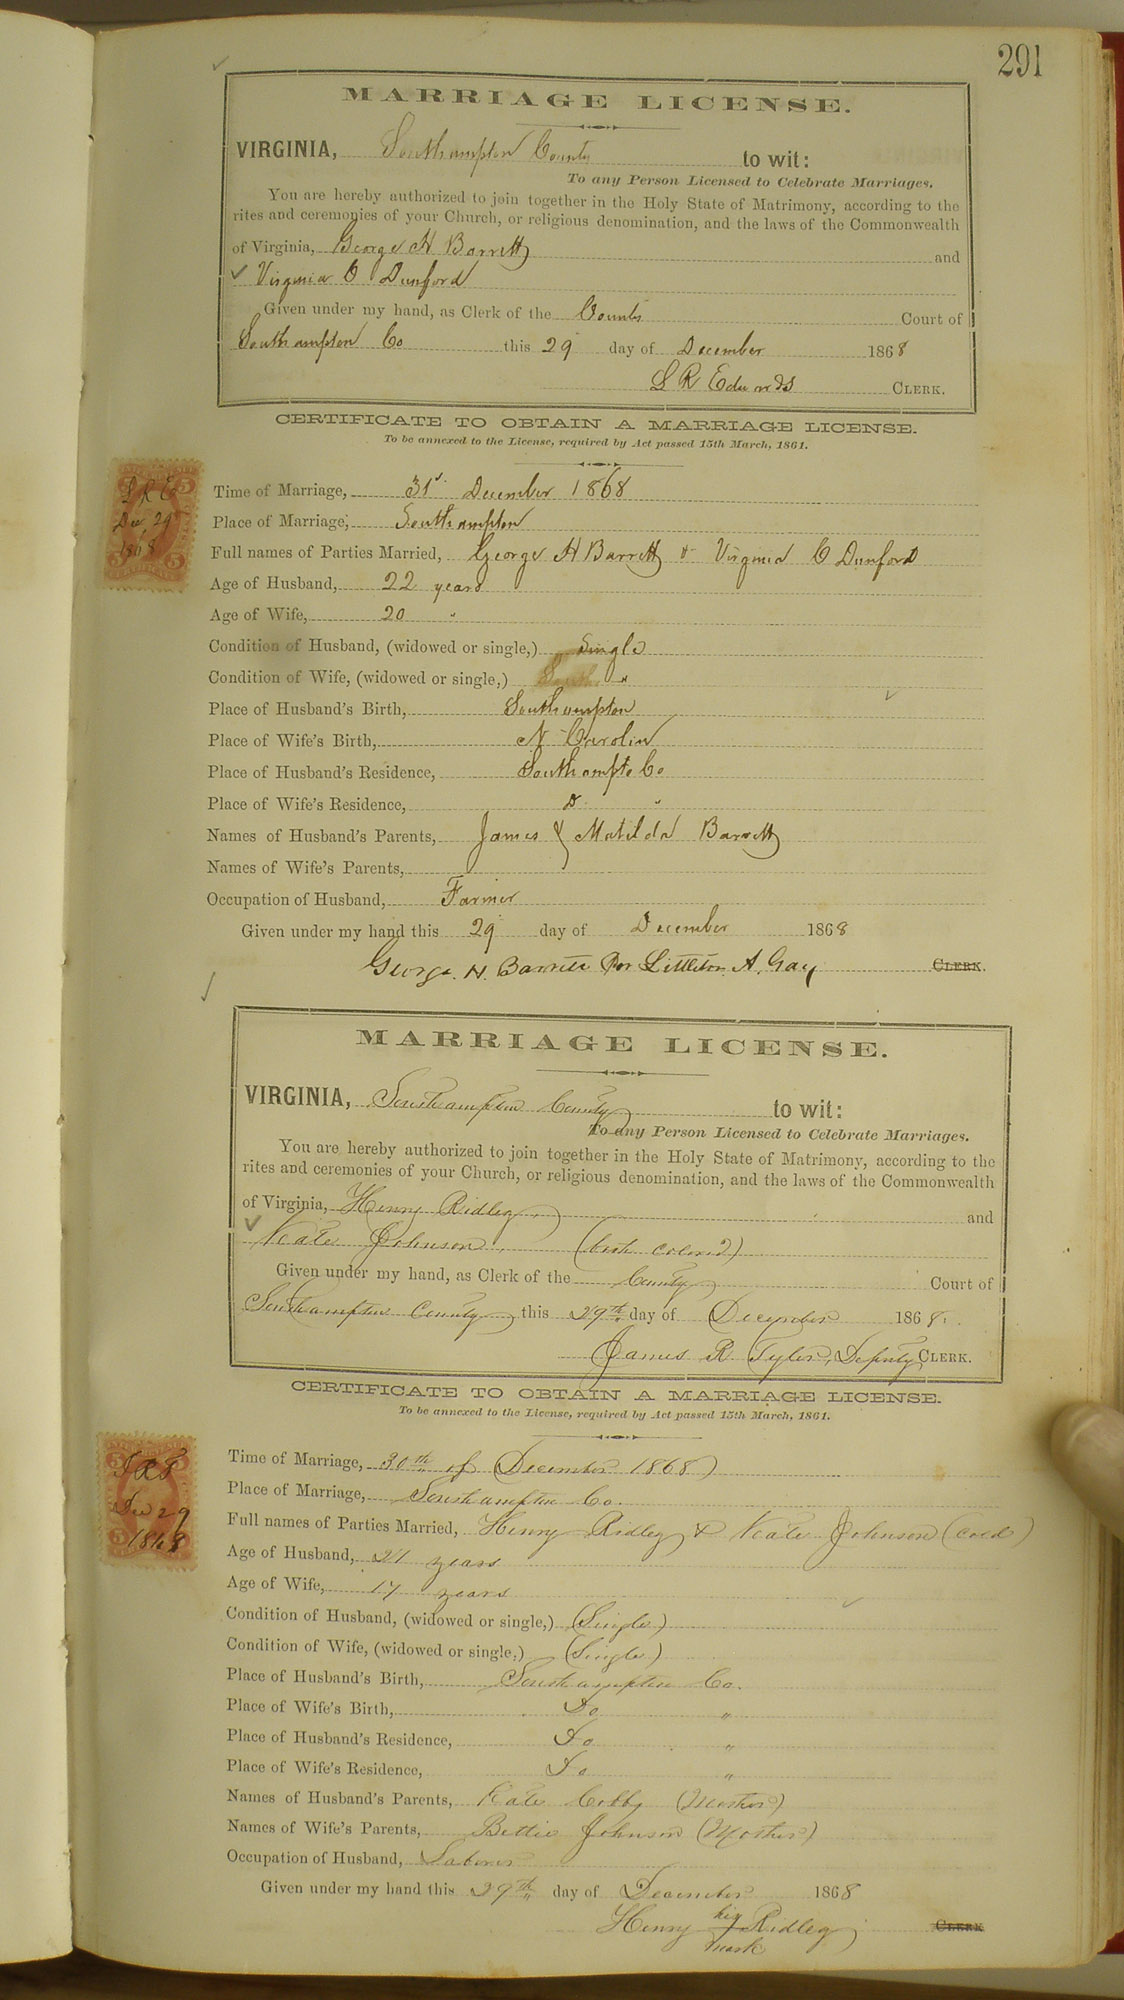 291
MARRIAGE LICENSE.
VIRGINIA, Southampton County to wit:
To any Person Licensed to Celebrate Marriages.
You are hereby authorized to join together in the Holy State of Matrimony, according to the
rites and ceremonies of your Church, or religious denomination, and the laws of the Commonwealth
of Virginia, George H Barrett and
Virginia C Dunford
Given under my hand, as Clerk of the County Court of
Southampton Co this 29 day of December 1868
L R Edwards CLERK.
CERTIFICATE TO OBTAIN A MARRIAGE LICENSE.
To be annexed to the License, required by Act passed 15th March, 1861.
L R E
Dec 29
1868
Time of Marriage, 31st December 1868
Place of Marriage, Southampton
Full names of Parties Married, George H Barrett & Virginia C Dunford
Age of Husband, 22 years
Age of Wife, 20 "
Condition of Husband, (widowed or single,) Single
Condition of Wife, (widowed or single,) "
Place of Husband's Birth, Southampton
Place of Wife's Birth, N Carolin
Place of Husband's Residence, Southampto Co
Place of Wife's Residence, D "
Names of Husband's Parents, James & Matilda Barrett
Names of Wife's Parents,
Occupation of Husband, Farmer
Given under my hand this 29 day of December 1868
George. H. Barrett Per Littleton. A. Gay CLERK.
MARRIAGE LICENSE.
VIRGINIA, Southampton County to wit:
To any Person Licensed to Celebrate Marriages.
You are hereby authorized to join together in the Holy State of Matrimony, according to the
rites and ceremonies of your Church, or religious denomination, and the laws of the Commonwealth
of Virginia, Henry Ridley, and
Kate Johnson, (both colored)
Given under my hand, as Clerk of the County Court of
Southampton County this 29th day of December 1868.
James R Tyler, Deputy CLERK.
CERTIFICATE TO OBTAIN A MARRIAGE LICENSE.
To be annexed to the License, required by Act passed 15th March, 1861.
J R T
Dec 29
1868
Time of Marriage, 30th of December 1868
Place of Marriage, Southampton Co.
Full names of Parties Married, Henry Ridley & Kate Johnson (cold)
Age of Husband, 21 years
Age of Wife, 17 years
Condition of Husband, (widowed or single,) (Single)
Condition of Wife, (widowed or single,) (Single)
Place of Husband's Birth, Southampton Co.
Place of Wife's Birth, Do "
Place of Husband's Residence, Do "
Place of Wife's Residence, Do "
Names of Husband's Parents, Kate Cobby (Mother)
Names of Wife's Parents, Bettie Johnson (Mother)
Occupation of Husband, Laborer
Given under my hand this 29th day of December 1868
Henry his Ridley CLERK
mark